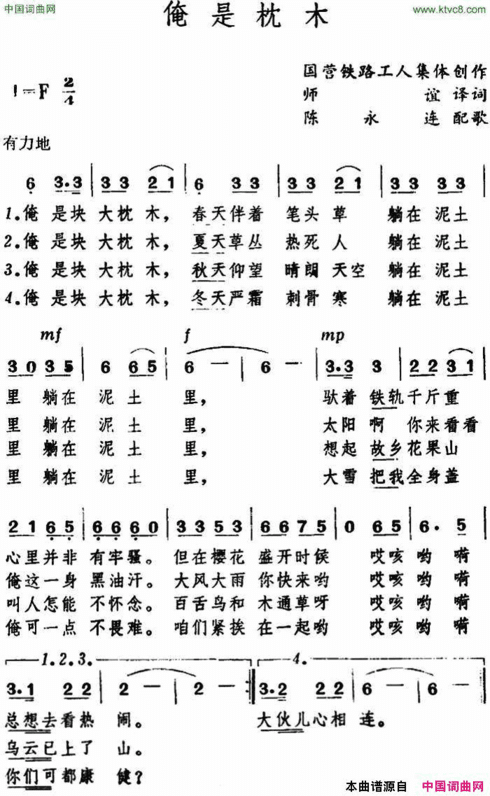 中国词曲网
www.ktvc8.com
俺是枕木
1=F 2/4
国营铁路工人集体创作
师谊译词
陈永连配歌
有力地
6 3·3 3 3 2 1 6 3 3 3 3 2 1 3 3 2 1
1.俺是块大枕木，春天伴着笔头草躺在泥土
2.俺是块大枕木，夏天草丛热死人躺在泥土
3.俺是块大枕木，秋天仰望晴阔天空躺在泥土
4.俺是块大枕木，冬天严霜刺骨寒躺在泥土
mf f mp
3 0 3 5 6 6 5 6 － 6 － 3·3 3 2 2 3 1
里躺在泥土里，驮着铁轨千斤重
里躺在泥土里，太阳啊你来看看
里躺在泥土里，想起故乡花果山
里躺在泥土里，大雪把我全身盖
2 1 6 5 6 6 6 0 3 3 5 3 6 6 7 5 0 6 5 6· 5
心里并非有牢骚。但在樱花盛开时候哎咳哟嗬
俺这一身黑油汗。大风大雨你快来哟哎咳哟嗬
叫人怎能不怀念。百舌鸟和木通草呀哎咳哟嗬
俺可一点不畏难。咱们紧挨在一起哟哎咳哟嗬
1.2.3. 4.
3·1 2 2 2 － 2 － 3·2 2 2 6 － 6 －
总想去看热闹。大伙儿心相连。
乌云已上了山。
你们可都康健？
本曲谱源自 中国词曲网